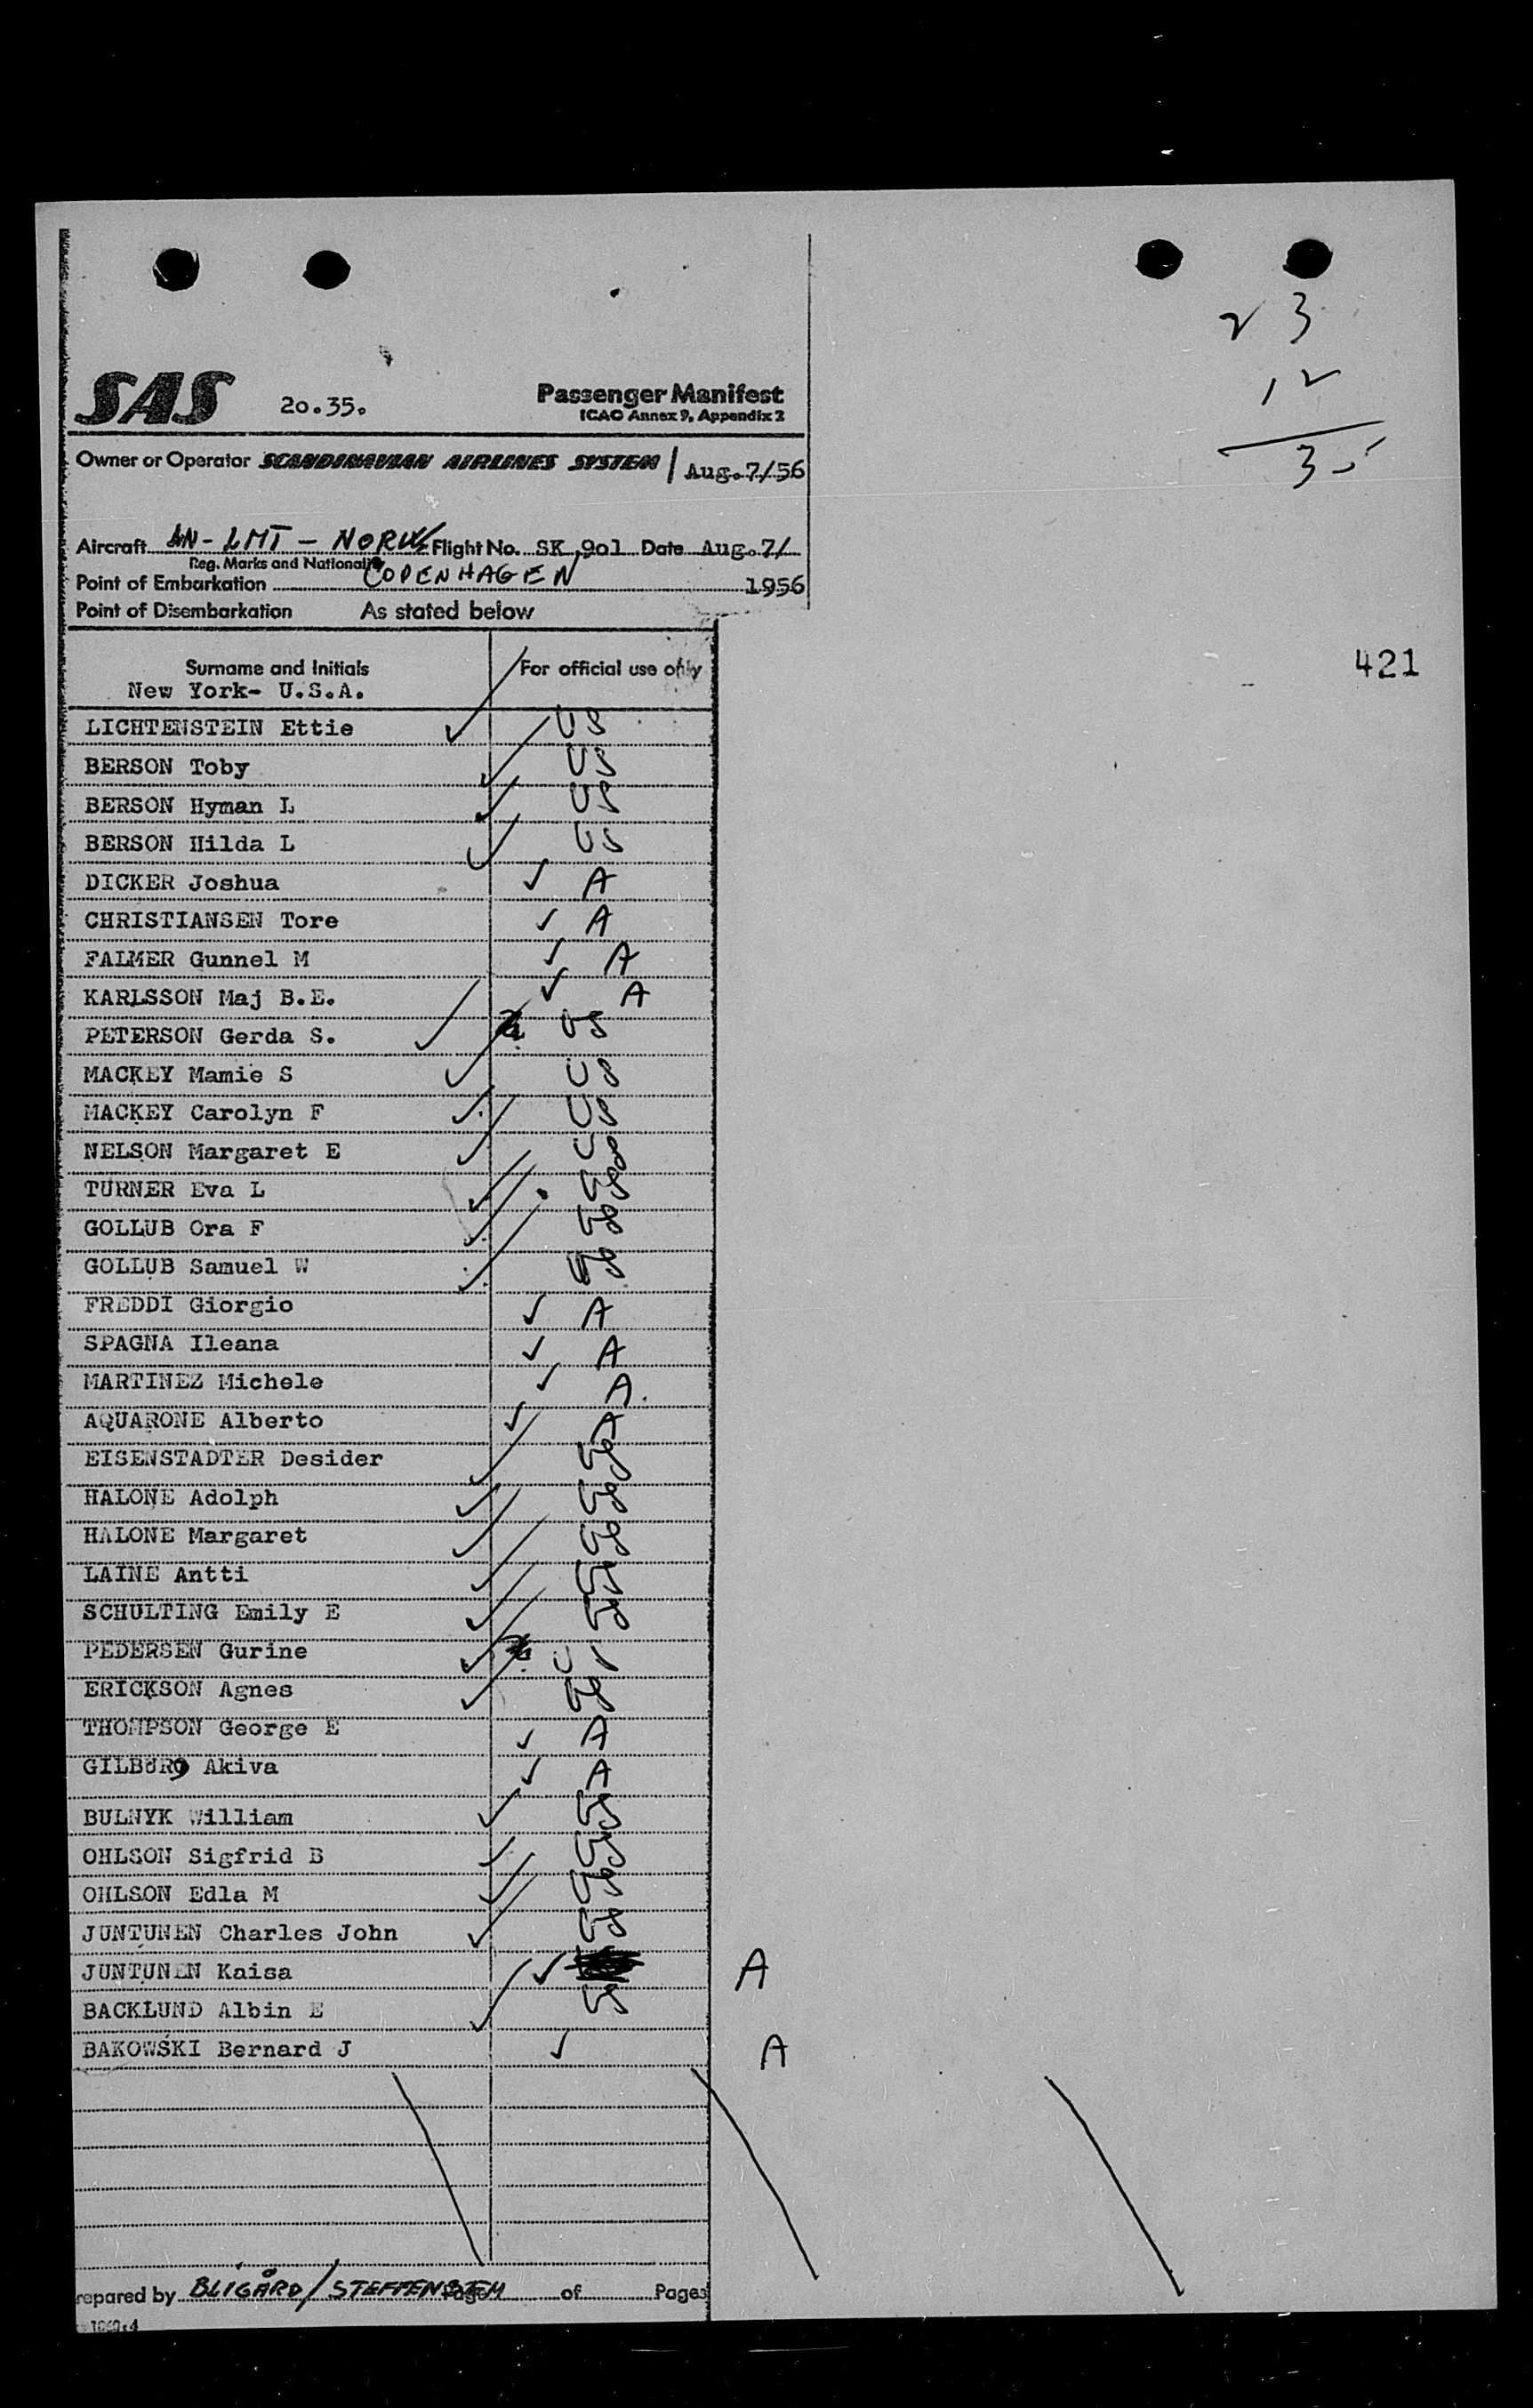 23
12
35
SAS 20.35. Passenger Manifest
ICAO Annex 9, Appendix 2
Owner or Operator SCANDINAVIAN AIRLINES SYSTEM / Aug.7/56
Aircraft LN-LMT - NORW Flight No. SK 901 Date Aug.7/
Reg. Marks and Nationality
Point of Embarkation COPENHAGEN 1956
Point of Disembarkation As stated below
421
Surname and Initials For official use only
New York- U.S.A.
LICHTENSTEIN Ettie ✓ US
BERSON Toby ✓ US
BERSON Hyman L ✓ US
BERSON Hilda L ✓ US
DICKER Joshua ✓ A
CHRISTIANSEN Tore ✓ A
FALMER Gunnel M ✓ A
KARLSSON Maj B.E. ✓ A
PETERSON Gerda S. ✓ US
MACKEY Mamie S ✓ US
MACKEY Carolyn F ✓ US
NELSON Margaret E ✓ US
TURNER Eva L ✓ US
GOLLUB Ora F ✓ US
GOLLUB Samuel W ✓ US
FREDDI Giorgio ✓ A
SPAGNA Ileana ✓ A
MARTINEZ Michele ✓ A.
AQUARONE Alberto ✓ A
EISENSTADTER Desider ✓ US
HALONE Adolph ✓ US
HALONE Margaret ✓ US
LAINE Antti ✓ US
SCHULTING Emily E ✓ US
PEDERSEN Gurine ✓ US
ERICKSON Agnes ✓ US
THOMPSON George E ✓ A
GILBURG Akiva ✓ A
BULNYK William ✓ US
OHLSON Sigfrid B ✓ US
OHLSON Edla M ✓ US
JUNTUNEN Charles John ✓ US
JUNTUNEN Kaisa ✓ A
BACKLUND Albin E ✓ US
BAKOWSKI Bernard J ✓ A
repared by BLIGÅRD/STEFFENSEM Page of Pages